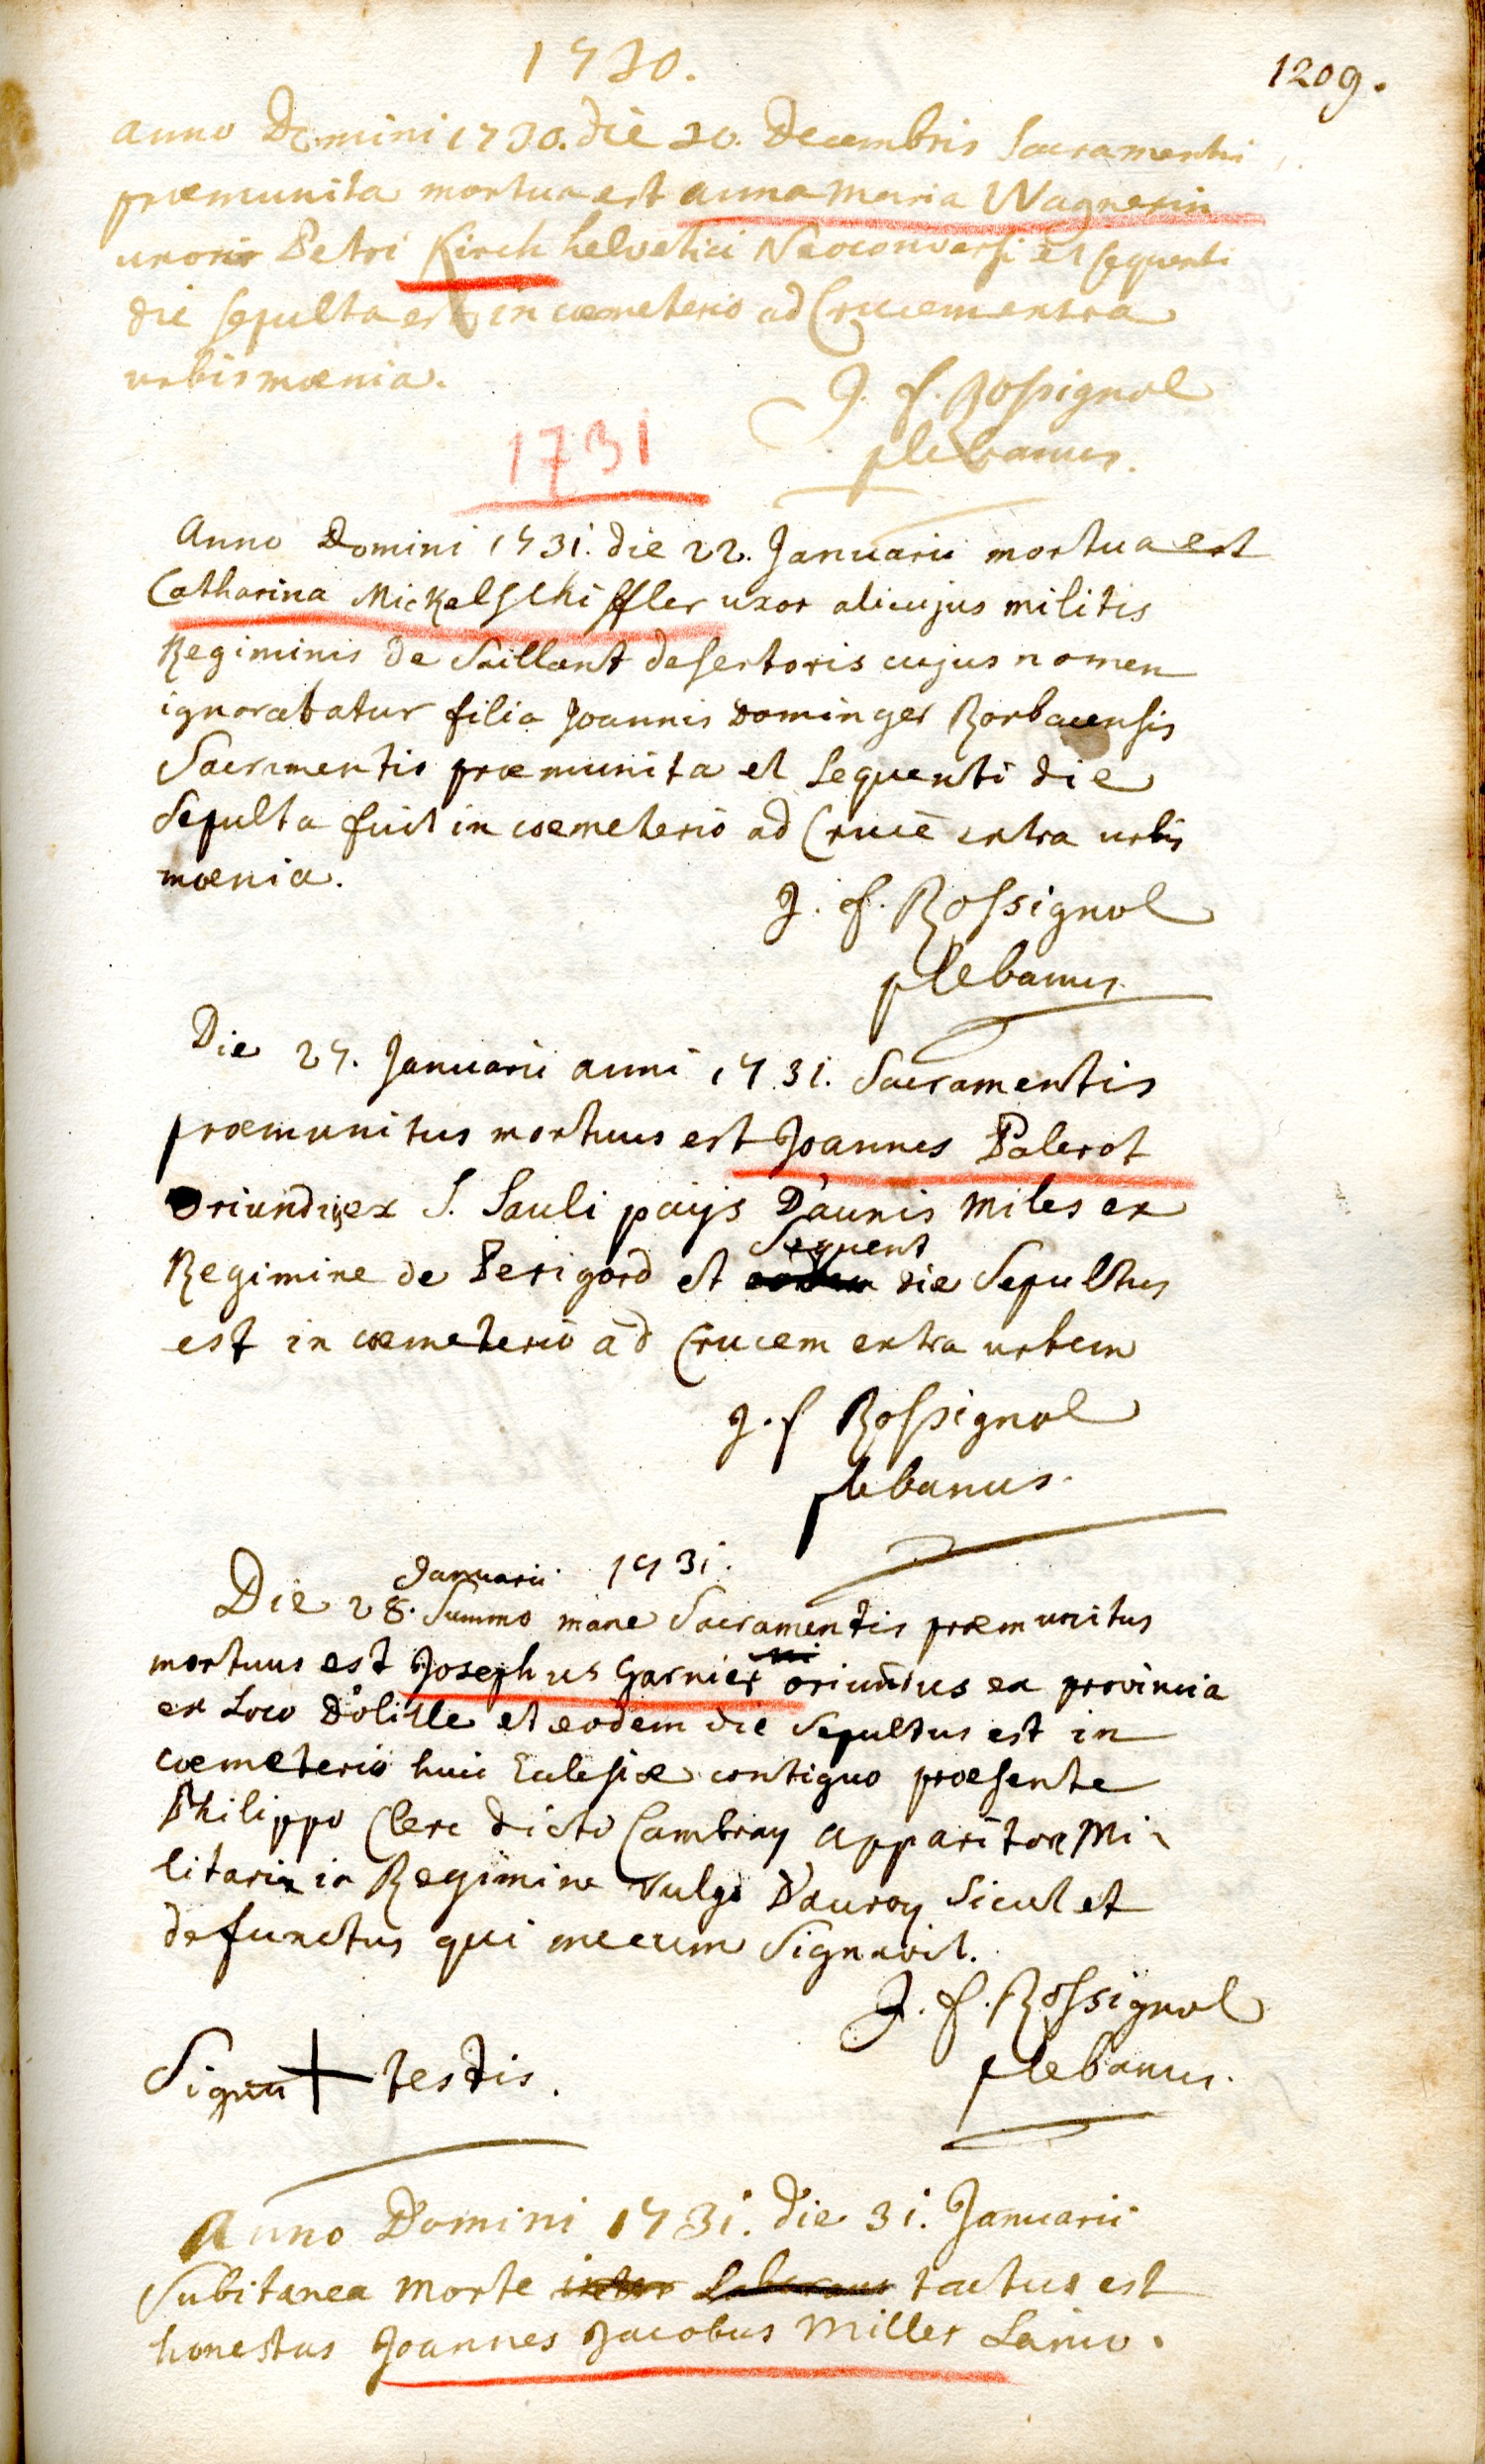 1730.
1209.
anno Domini 1730. die 30. Decembris Sacramentis
præmunita mortua est anna maria Wagnerin
uxor Petri Kirch helvetici Neoconversi et sequenti
die sepulta est in cœmeterio ad Crucem extra
urbis mœnia.
J. f. Rossignol
plebanus.
1731
Anno Domini 1731. die 22. Januarii mortua est
Catharina Mickelschiffler uxor alicujus militis
Regiminis de Saillant desertoris cujus nomen
ignorabatur filia Joannis Dominger Rorbacensis
Sacramentis præmunita et sequenti die
Sepulta fuit in cœmeterio ad Crucē extra urbis
mœnia.
J. f. Rossignol
plebanus.
Die 27. Januarii anni 1731. Sacramentis
præmunitus mortuus est Joannes Palerot
Oriundus ex S. Sauli pays D'aunis miles ex
Sequent
Regimine de Perigord et die Sepultus
est in cœmeterio ad Crucem extra urbem
J. f Rossignol
plebanus.
Januarii 1731.
Die 28. Summo mane Sacramentis præmunitus
mortuus est Josephus Garnier oriundus ex provincia
ex Loco D'olille et eodem die Sepultus est in
cœmeterio huic Eclesiæ contiguo præsente
Philippo Clerc dicto Cambray apparitore Mi
litari in Regimine vulgo D'auroy Sicut et
defunctus qui mecum Signavit.
J. f. Rossignol
plebanus.
Signū + testis.
Anno Domini 1731. die 31. Januarii
Subitanea morte tactus est
honestus Joannes Jacobus Miller Lanio.